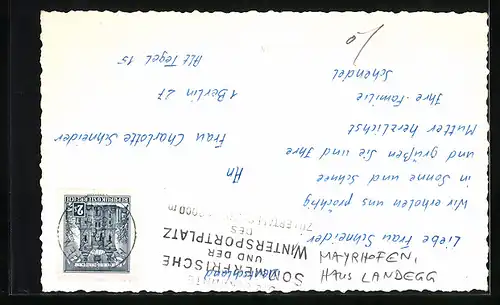 MAYRHOFEN,
HAUS LANDEGG
Liebe Frau Schneider
Wir erholen uns prächtig
in Sonne und Schnee
und grüßen Sie und Ihre
Mutter herzlichst
Ihre Familie
Schendel
SOMMERFRISCHE
UND DER
WINTERSPORTPLATZ
DES
ZILLERTALES
REPUBLIK ÖSTERREICH
2
An
Frau Charlotte Schneider
1 Berlin 27
Alt Tegel 15